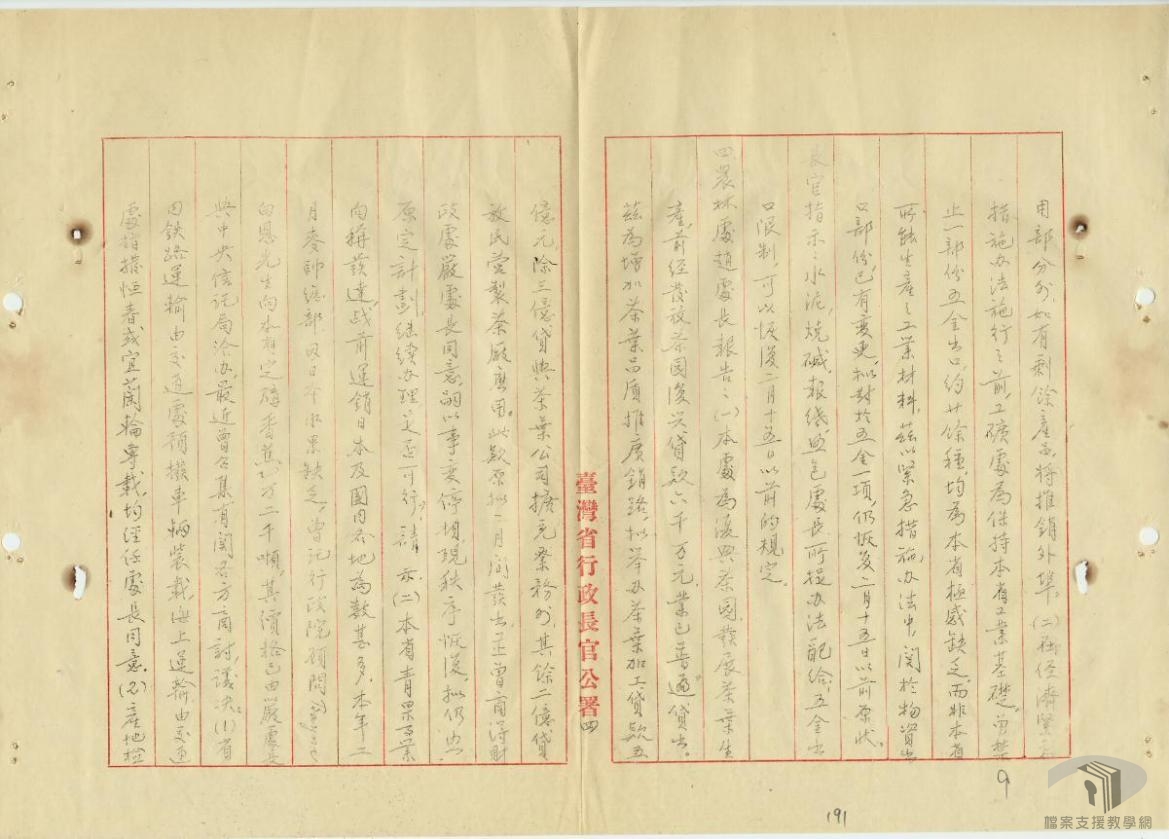 用部分外,如有剩餘產品,將推銷外埠。(二)在經濟緊急
措施办法施行之前,工礦處為保持本省工業基礎,曾禁
止一部份五金出口,約廿餘種,均為本省極感缺乏,而非本省
所能生產之工業材料,茲以緊急措施办法中,関於物資出
口部份已有變更,擬對於五金一項,仍恢复二月十五日以前原狀。
長官指示:水泥,燒碱,報紙,照包處長所提办法配給,五金出
口限制,可以恢復二月十五日以前的規定。
四農林處趙處長報告:(一)本處為復興茶園,發展茶葉生
產,前經發放茶園復兴貸款六千万元,業已普遍貸出。
茲為增加茶葉品質推廣銷路,拟举办茶葉加工貸款五
臺灣省行政長官公署
四
億元,除三億貸與茶葉公司擴充業務外,其餘二億貸
放民营製茶廠應用。此款原拟二月间發出,並曾商得財
政處嚴處長同意,嗣以事变停頓,現秩序恢復,拟仍照
原定計劃,继续办理,是否可行,請示。(二)本省青菓事業
向稱發達,战前運銷日本及國内各地為數甚多,本年二
月麥帥總部,因日本水果缺乏,曾託行政院顧問
向恩先生向本省定購香蕉一万二千噸,其價格已由嚴處長
與中央信託局洽办,最近曾召集有関各方商討,議决:(1)省
由鉄路運輸由交通處預撥車輛裝載,海上運輸由交通
處指撥恒春或宜蘭輪專載,均經任處長同意,(2)產地檢
9
191
檔案支援教學網